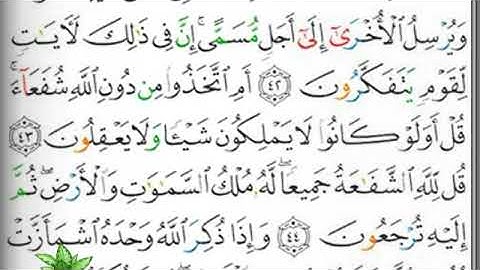 وَيُرْسِلُ ٱلْأُخْرَىٰٓ إِلَىٰٓ أَجَلٍ مُّسَمًّى ۚ إِنَّ فِى ذَٰلِكَ لَـَٔايَـٰتٍ
لِّقَوْمٍ يَتَفَكَّرُونَ ﴿٤٢﴾ أَمِ ٱتَّخَذُوا۟ مِن دُونِ ٱللَّهِ شُفَعَآءَ ۚ
قُلْ أَوَلَوْ كَانُوا۟ لَا يَمْلِكُونَ شَيْـًٔا وَلَا يَعْقِلُونَ ﴿٤٣﴾
قُل لِّلَّهِ ٱلشَّفَـٰعَةُ جَمِيعًا ۖ لَّهُۥ مُلْكُ ٱلسَّمَـٰوَٰتِ وَٱلْأَرْضِ ۖ ثُمَّ
إِلَيْهِ تُرْجَعُونَ ﴿٤٤﴾ وَإِذَا ذُكِرَ ٱللَّهُ وَحْدَهُ ٱشْمَأَزَّتْ